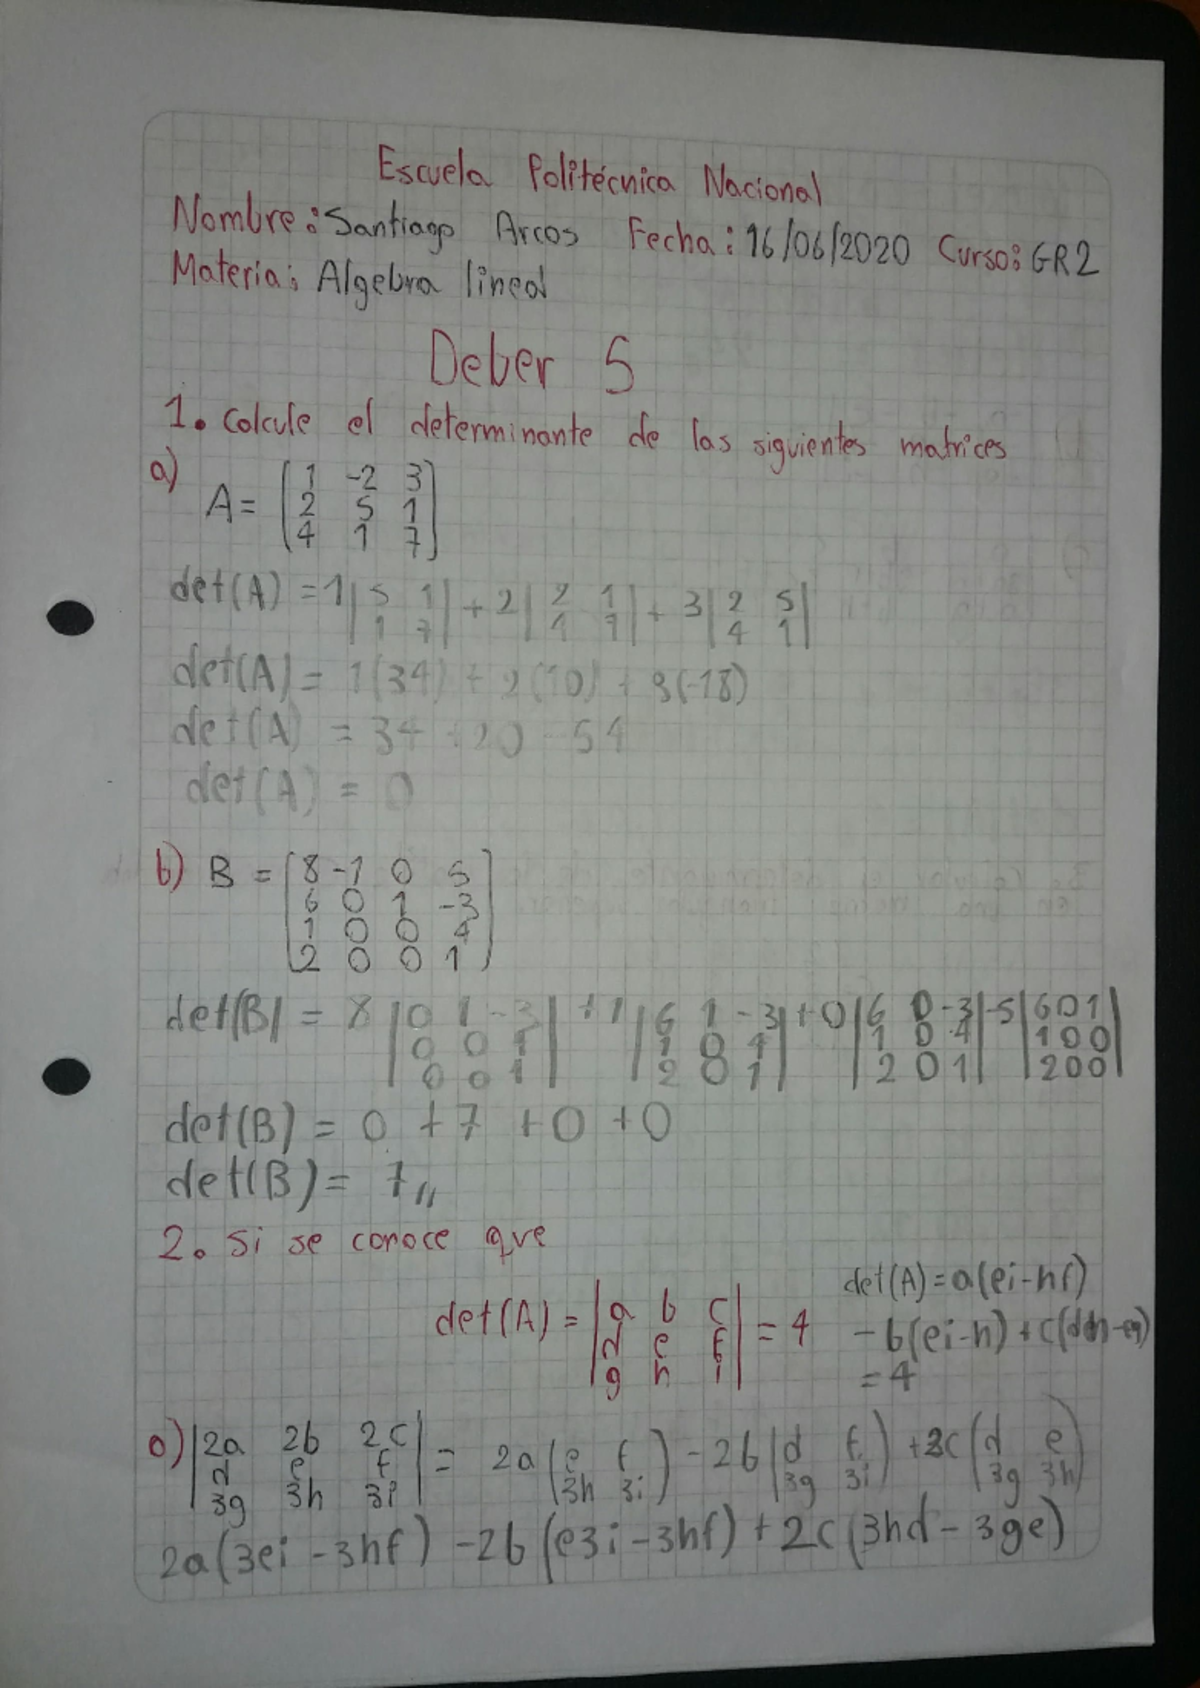 Escuela Politécnica Nacional
Nombre: Santiago Arcos Fecha: 16/06/2020 Curso: GR2
Materia: Algebra lineal
Deber 5
1. Calcule el determinante de las siguientes matrices
a)
A = [1 -2 3
2 5 1
4 1 7]
det(A) = 1|5 1| + 2|2 1| + 3|2 5|
1 7 4 7 4 1
det(A) = 1(34) + 2(10) + 3(-18)
det(A) = 34 + 20 - 54
det(A) = 0
b) B = [8 -1 0 5
6 0 1 -3
1 0 0 4
2 0 0 1]
det(B) = 8|0 1 -3| + 1|6 1 -3| + 0|6 0 -3| - 5|6 0 1|
0 0 4 1 0 4 1 0 4 1 0 0
0 0 1 2 0 1 2 0 1 2 0 0
det(B) = 0 + 7 + 0 + 0
det(B) = 7 //
2. Si se conoce que
det(A) = |a b c| = 4
d e f
g h i
det(A) = a(ei-hf)
- b(ei-h) + c(dh-eg)
= 4
a) |2a 2b 2c| = 2a(e f) - 2b|d f) + 2c(d e)
d e f 3h 3i 3g 3i 3g 3h
3g 3h 3i
2a(3ei - 3hf) - 2b(e3i - 3hf) + 2c(3hd - 3ge)